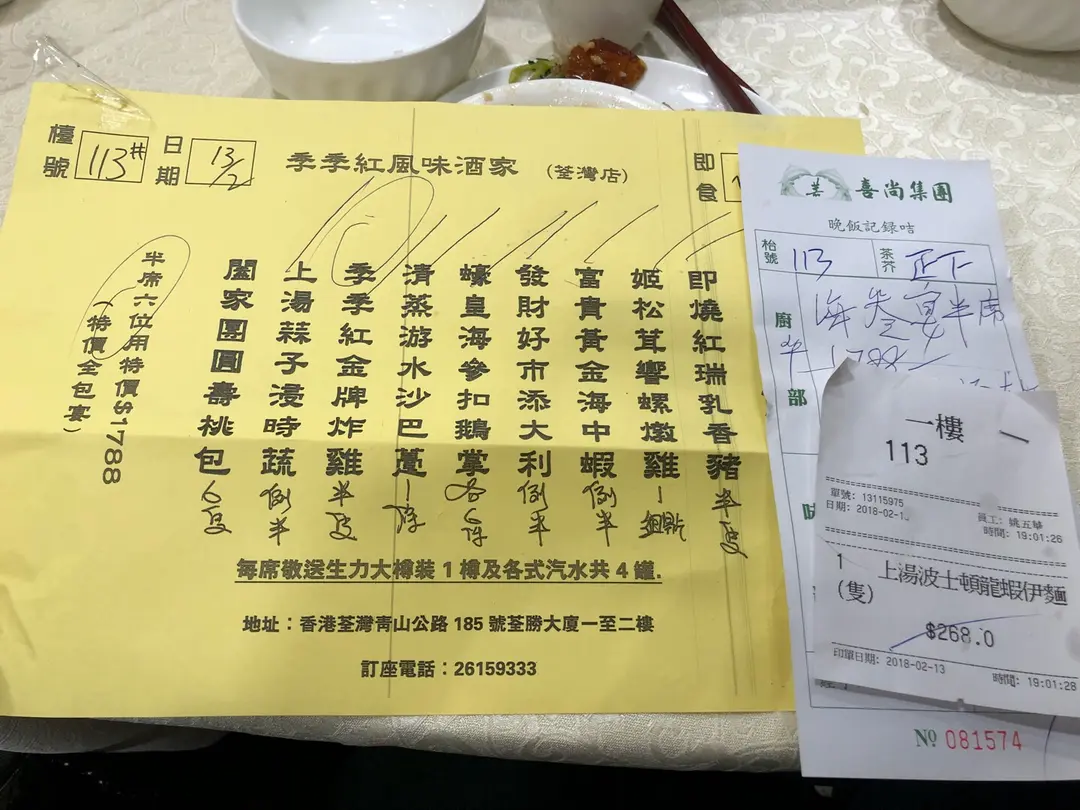 檯號 113#
日期 13/2
季季紅風味酒家 (荃灣店)
即食
即燒紅瑞乳香豬 半隻
姬松茸響螺燉雞 1
富貴黃金海中蝦 例半
發財好市添大利 例半
蠔皇海參扣鵝掌 各6件
清蒸游水沙巴躉 1條
季季紅金牌炸雞 半隻
上湯蒜子浸時蔬 例半
闔家團圓壽桃包 6隻
半席六位用特價$1788
(特價全包宴)
每席敬送生力大樽裝1樽及各式汽水共4罐.
地址：香港荃灣青山公路185號荃勝大廈一至二樓
訂座電話：26159333
喜尚集團
晚飯記錄咭
枱號 113
茶芥 正下
廚部
海參宴半席
1788
一樓
113
單號: 13115975
日期: 2018-02-1
員工: 姚五華
時間: 19:01:26
1 上湯波士頓龍蝦伊麵
(隻)
$268.0
印單日期: 2018-02-13
時間: 19:01:28
Nº 081574